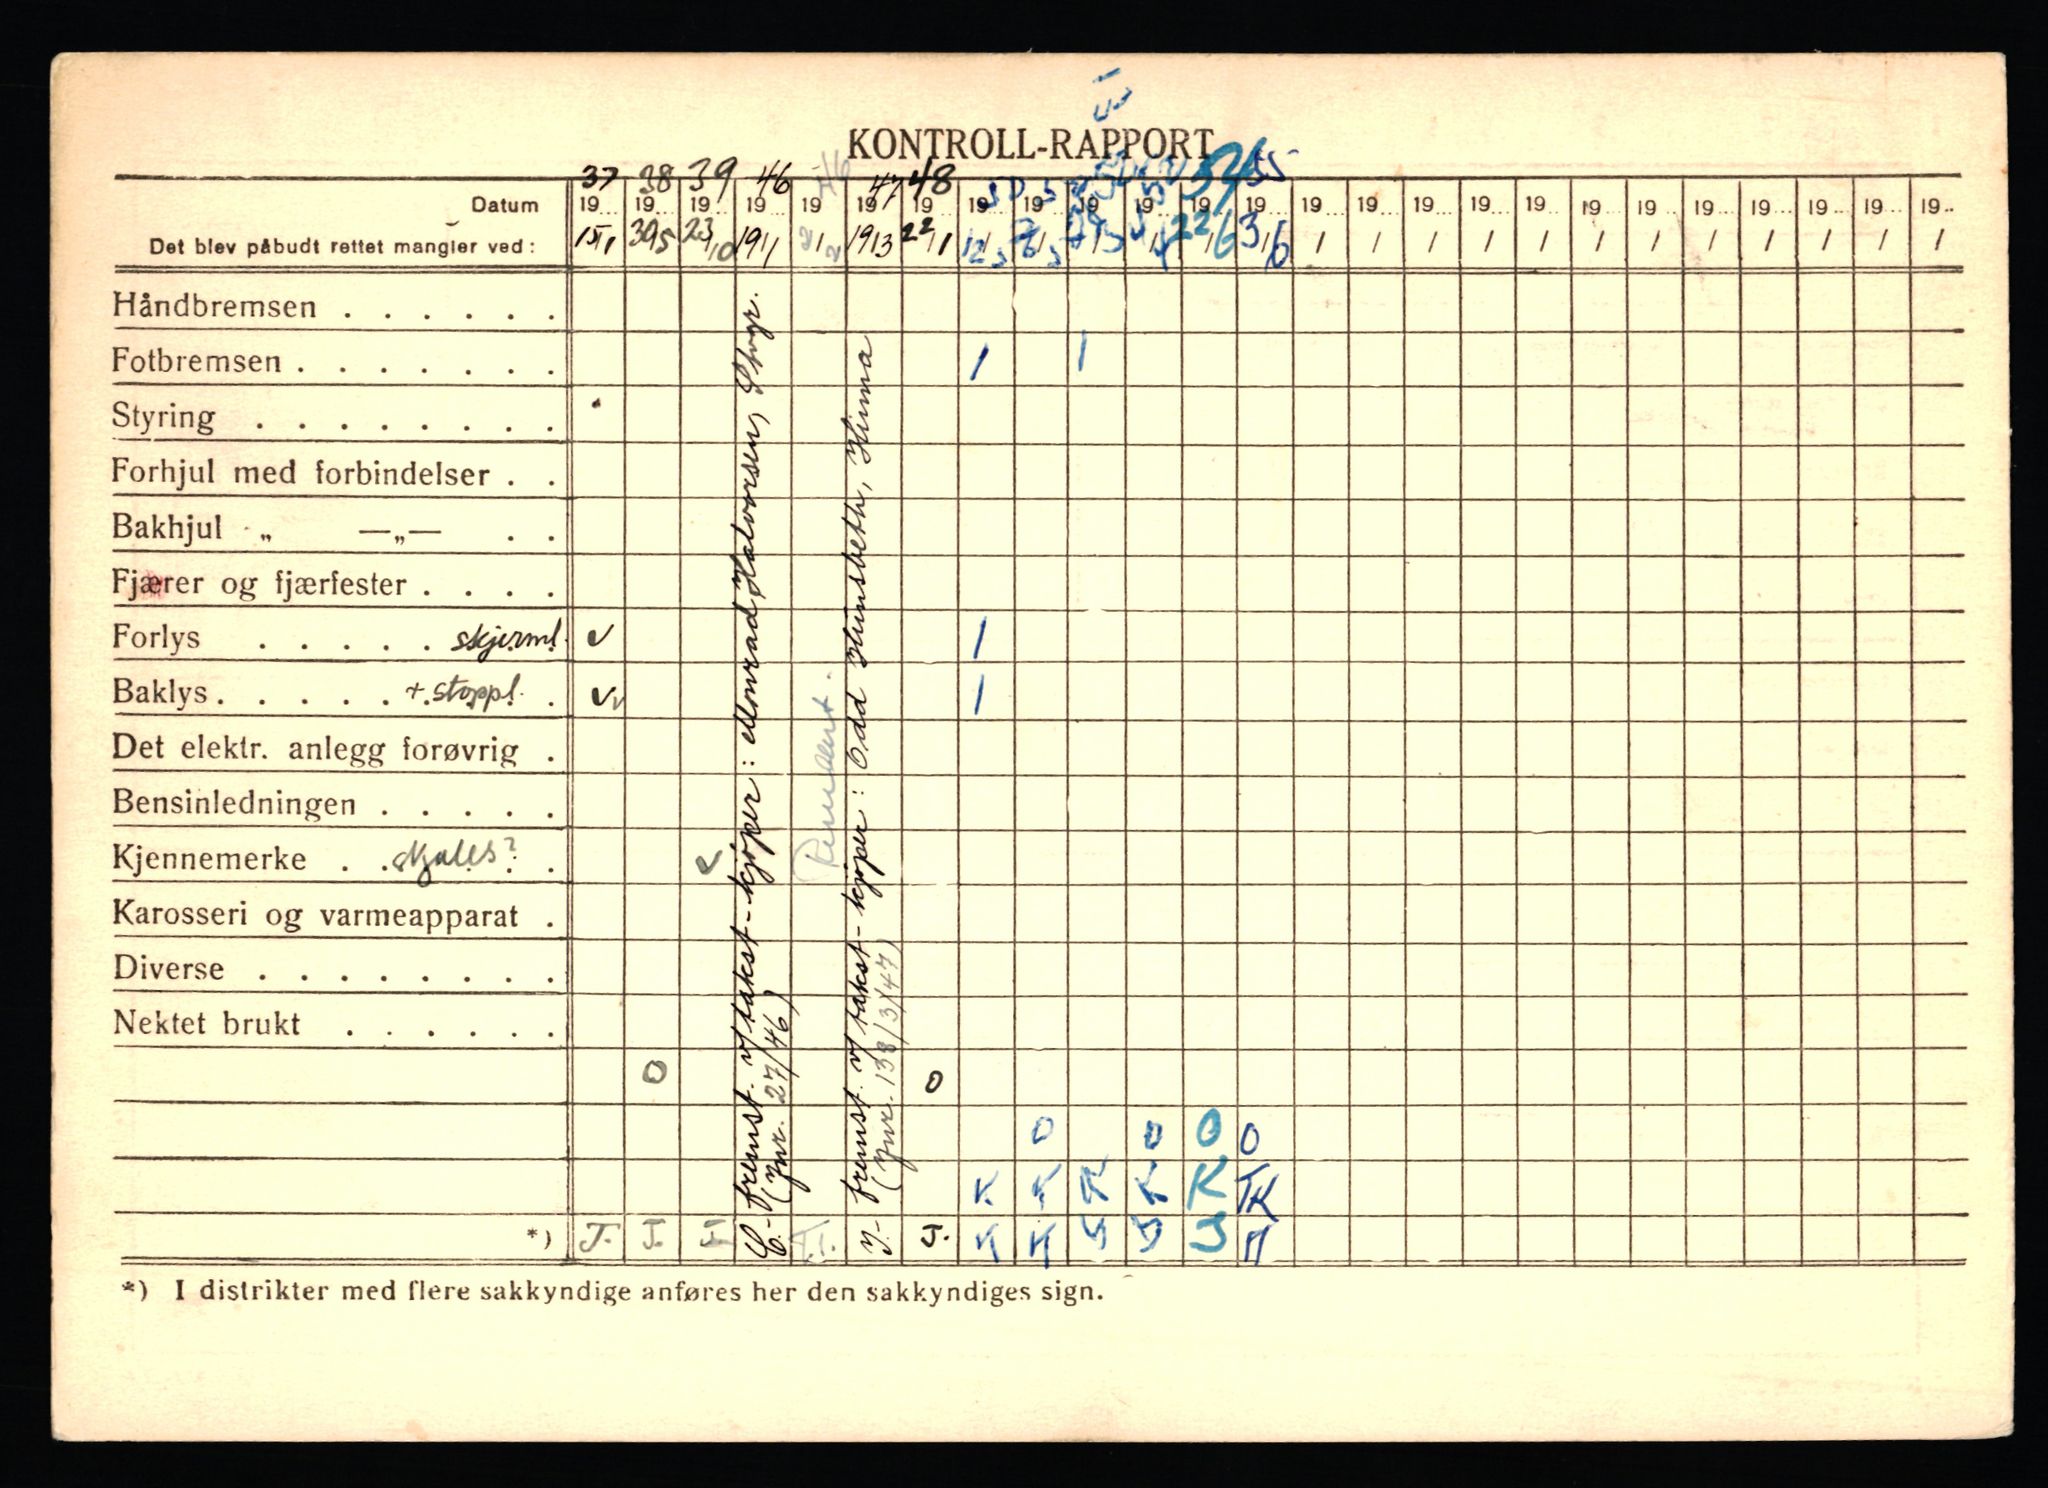 KONTROLL-RAPPORT
37 38 39 46 46 47 48 54 55
Datum 19... 19... 19... 19... 19 19 19... 19 19... 19... 19... 19... 19... 19... 19... 19... 19... 19... 19... 19... 19... 19... 19... 19... 19..
Det blev påbudt rettet mangler ved: 15/1 30/5 23/10 19/1 19/3 22/1 12/5 22/6 3/6 / / / / / / / / / / / /
Håndbremsen . . . . . .
Fotbremsen . . . . . . . 1 1
Styring . . . . . . . .
Forhjul med forbindelser . .
Bakhjul „ —„— . .
Fjærer og fjærfester . . . .
Forlys . . . . . skjerml. v 1
Baklys . . . . . + stoppl. . vv 1
Det elektr. anlegg forøvrig .
Bensinledningen . . . . .
Kjennemerke . . skjules? . v
Karosseri og varmeapparat .
Diverse . . . . . . . .
Nektet brukt . . . . . .
0 0
0 0 0 0
K K K K K TK
*) T. T. T. K K
fremst. v/takst - kjøper: Monrad Halvorsen, Stvgr.
(Jnr. 27/46)
fremst. v/takst - kjøper: Odd Hunsbeth, Hinna
(Jnr. 138/3/47)
*) I distrikter med flere sakkyndige anføres her den sakkyndiges sign.